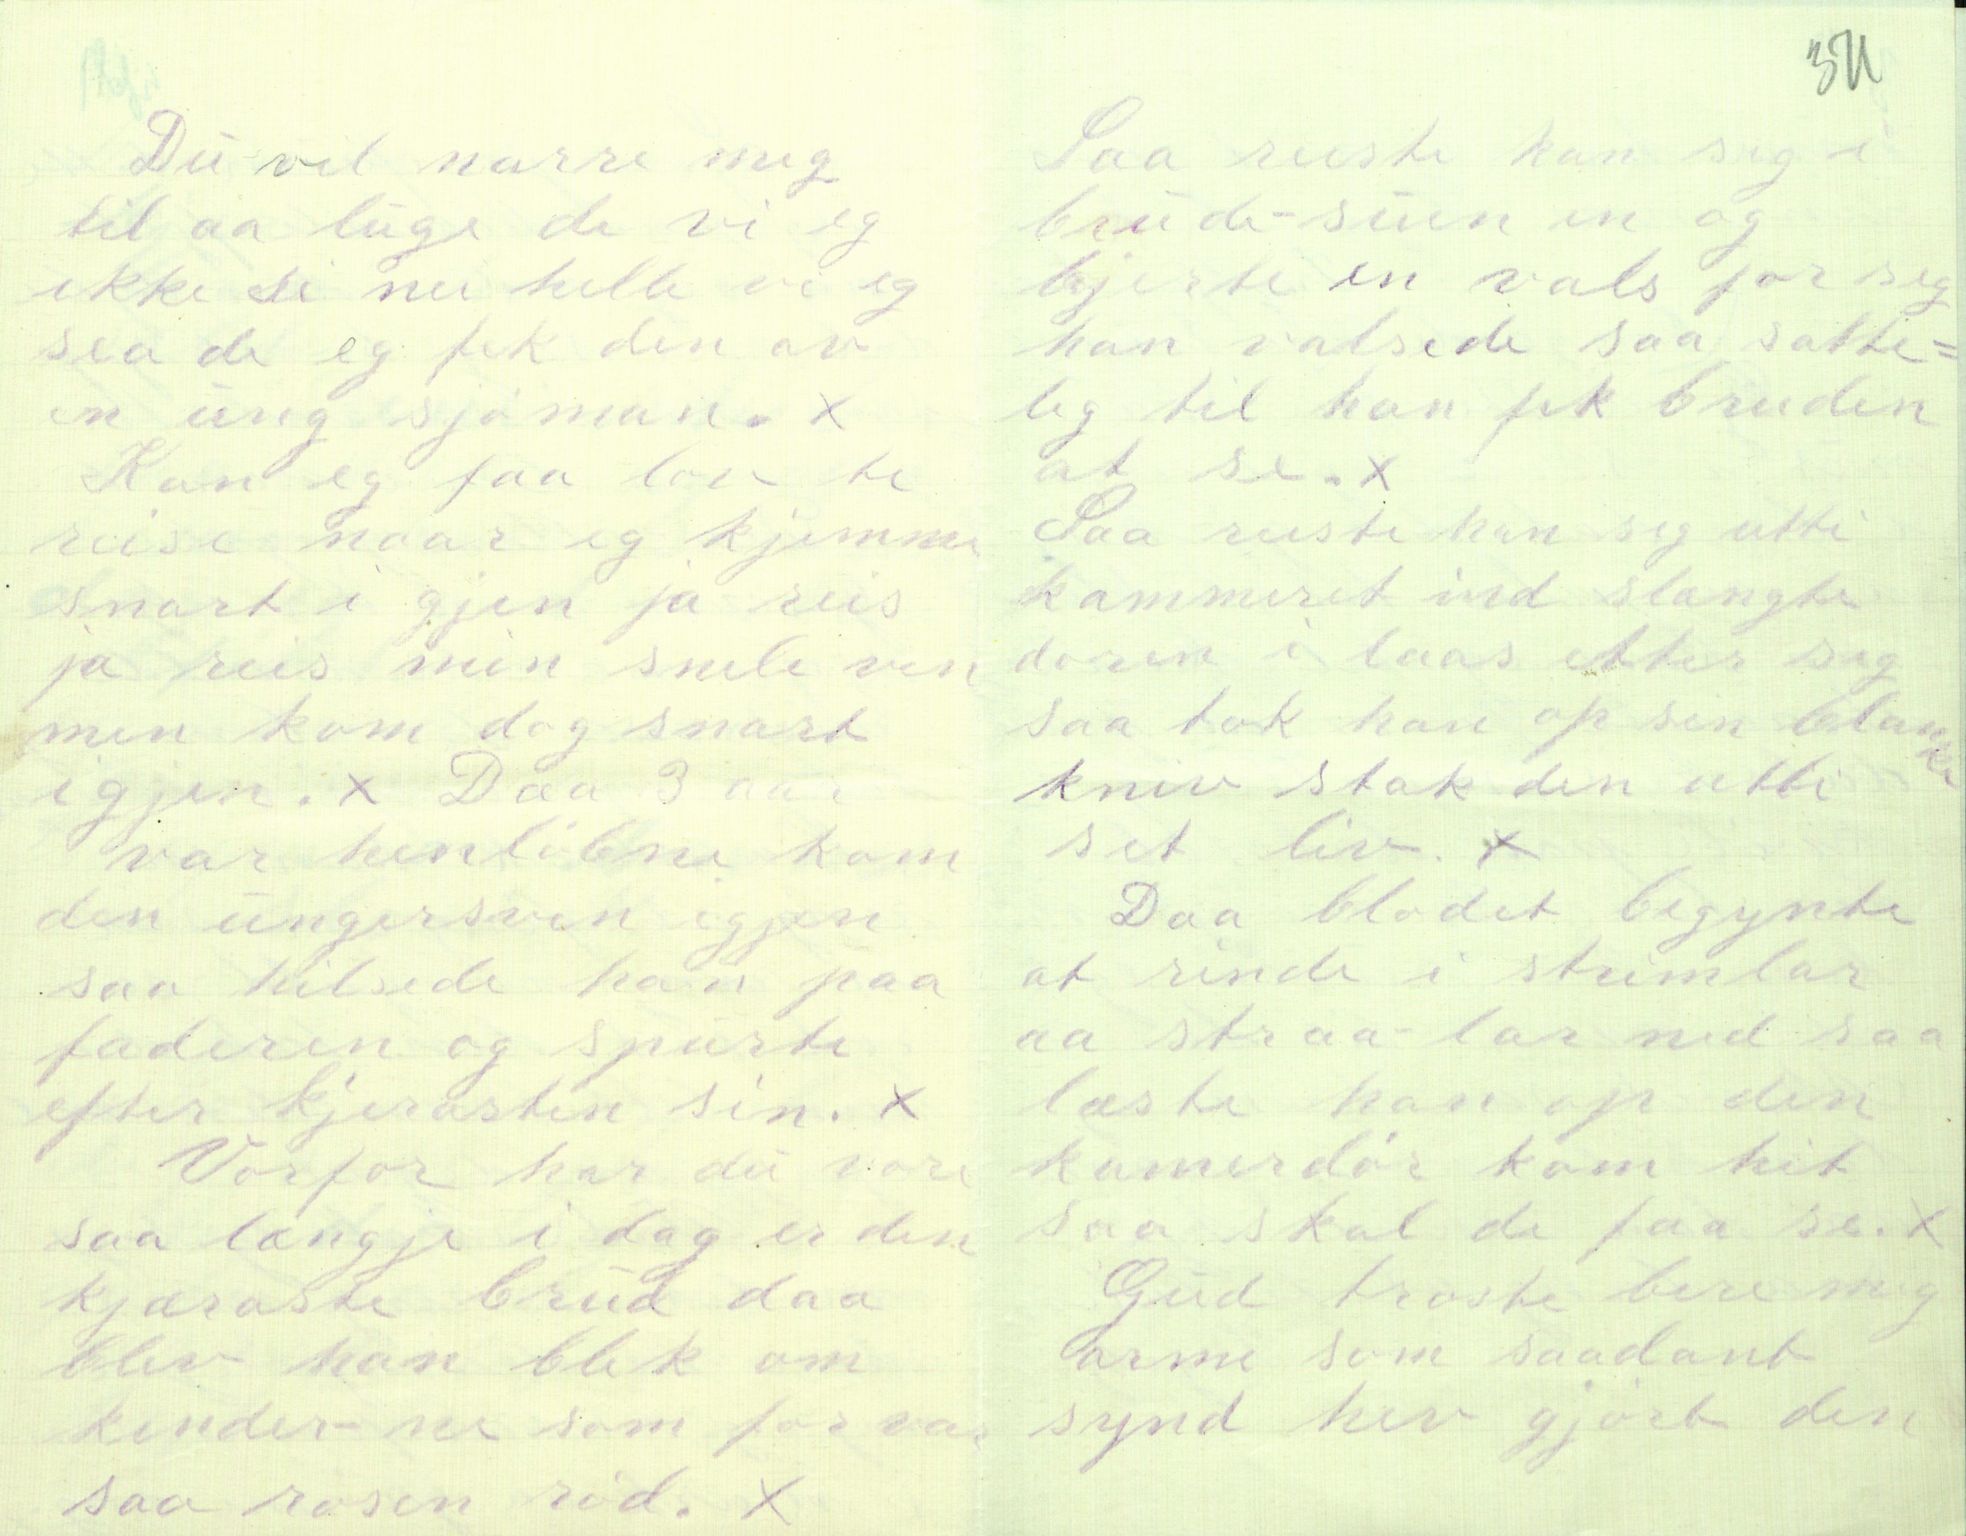 Du vil narre meg
til aa lüge de vi eg
ikke si nei helle vi eg
sea de eg fek den av
en üng sjøman. x
Kan eg faa lov te
reise naar eg kjemme
snart i gjen ja reis
ja reis min snele ven
men kom dog snart
igjen. x Daa 3 aar
var henløbne kom
den üngersven igjen
saa hilsede han paa
faderen og spürte
efter kjerasten sin. x
Vorfor har dü vore
saa længje i dag er den
kjæraste brüd daa
blev han blek om
kinder-ne som for var
saa rosen rød. x
34
Saa reiste han seg i
brüde-süen en og
bjerte en vals for seg
han valsede saa satte=
leg til han fek bruden
at se. x
Saa reiste han seg utti
kammeret ind slængte
døren i laas etter seg
saa tok han op sin blanke
kniv stak den utti
set liv. x
Daa blodet begynte
at rinde i strimlar
aa straa-lar ned saa
læste han op den
kamerdør kom hit
saa skal de faa se. x
Güd trøste bere meg
arme som saadant
synd hev gjört den